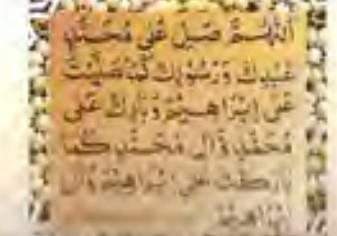 اَللّٰهُمَّ صَلِّ عَلٰی مُحَمَّدٍ
عَبْدِكَ وَرَسُوْلِكَ كَمَا صَلَّيْتَ
عَلٰی اِبْرَاهِيْمَ وَبَارِكْ عَلٰی
مُحَمَّدٍ وَّاٰلِ مُحَمَّدٍ كَمَا
بَارَكْتَ عَلٰی اِبْرَاهِيْمَ وَاٰلِ
اِبْرَاهِيْمَ